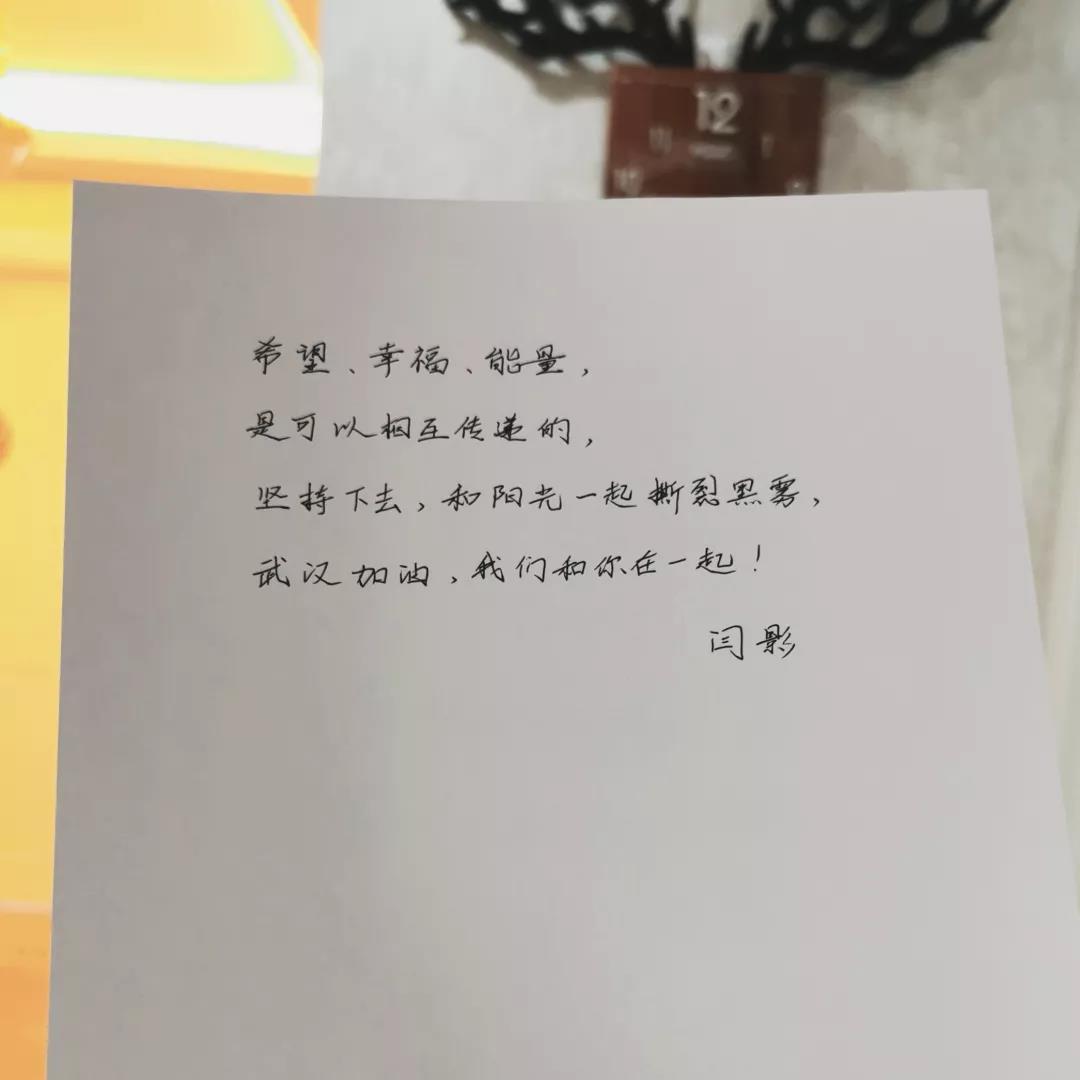 12
11
1
10
希望、幸福、能量，
是可以相互传递的，
坚持下去，和阳光一起撕裂黑雾，
武汉加油，我们和你在一起！
闫影